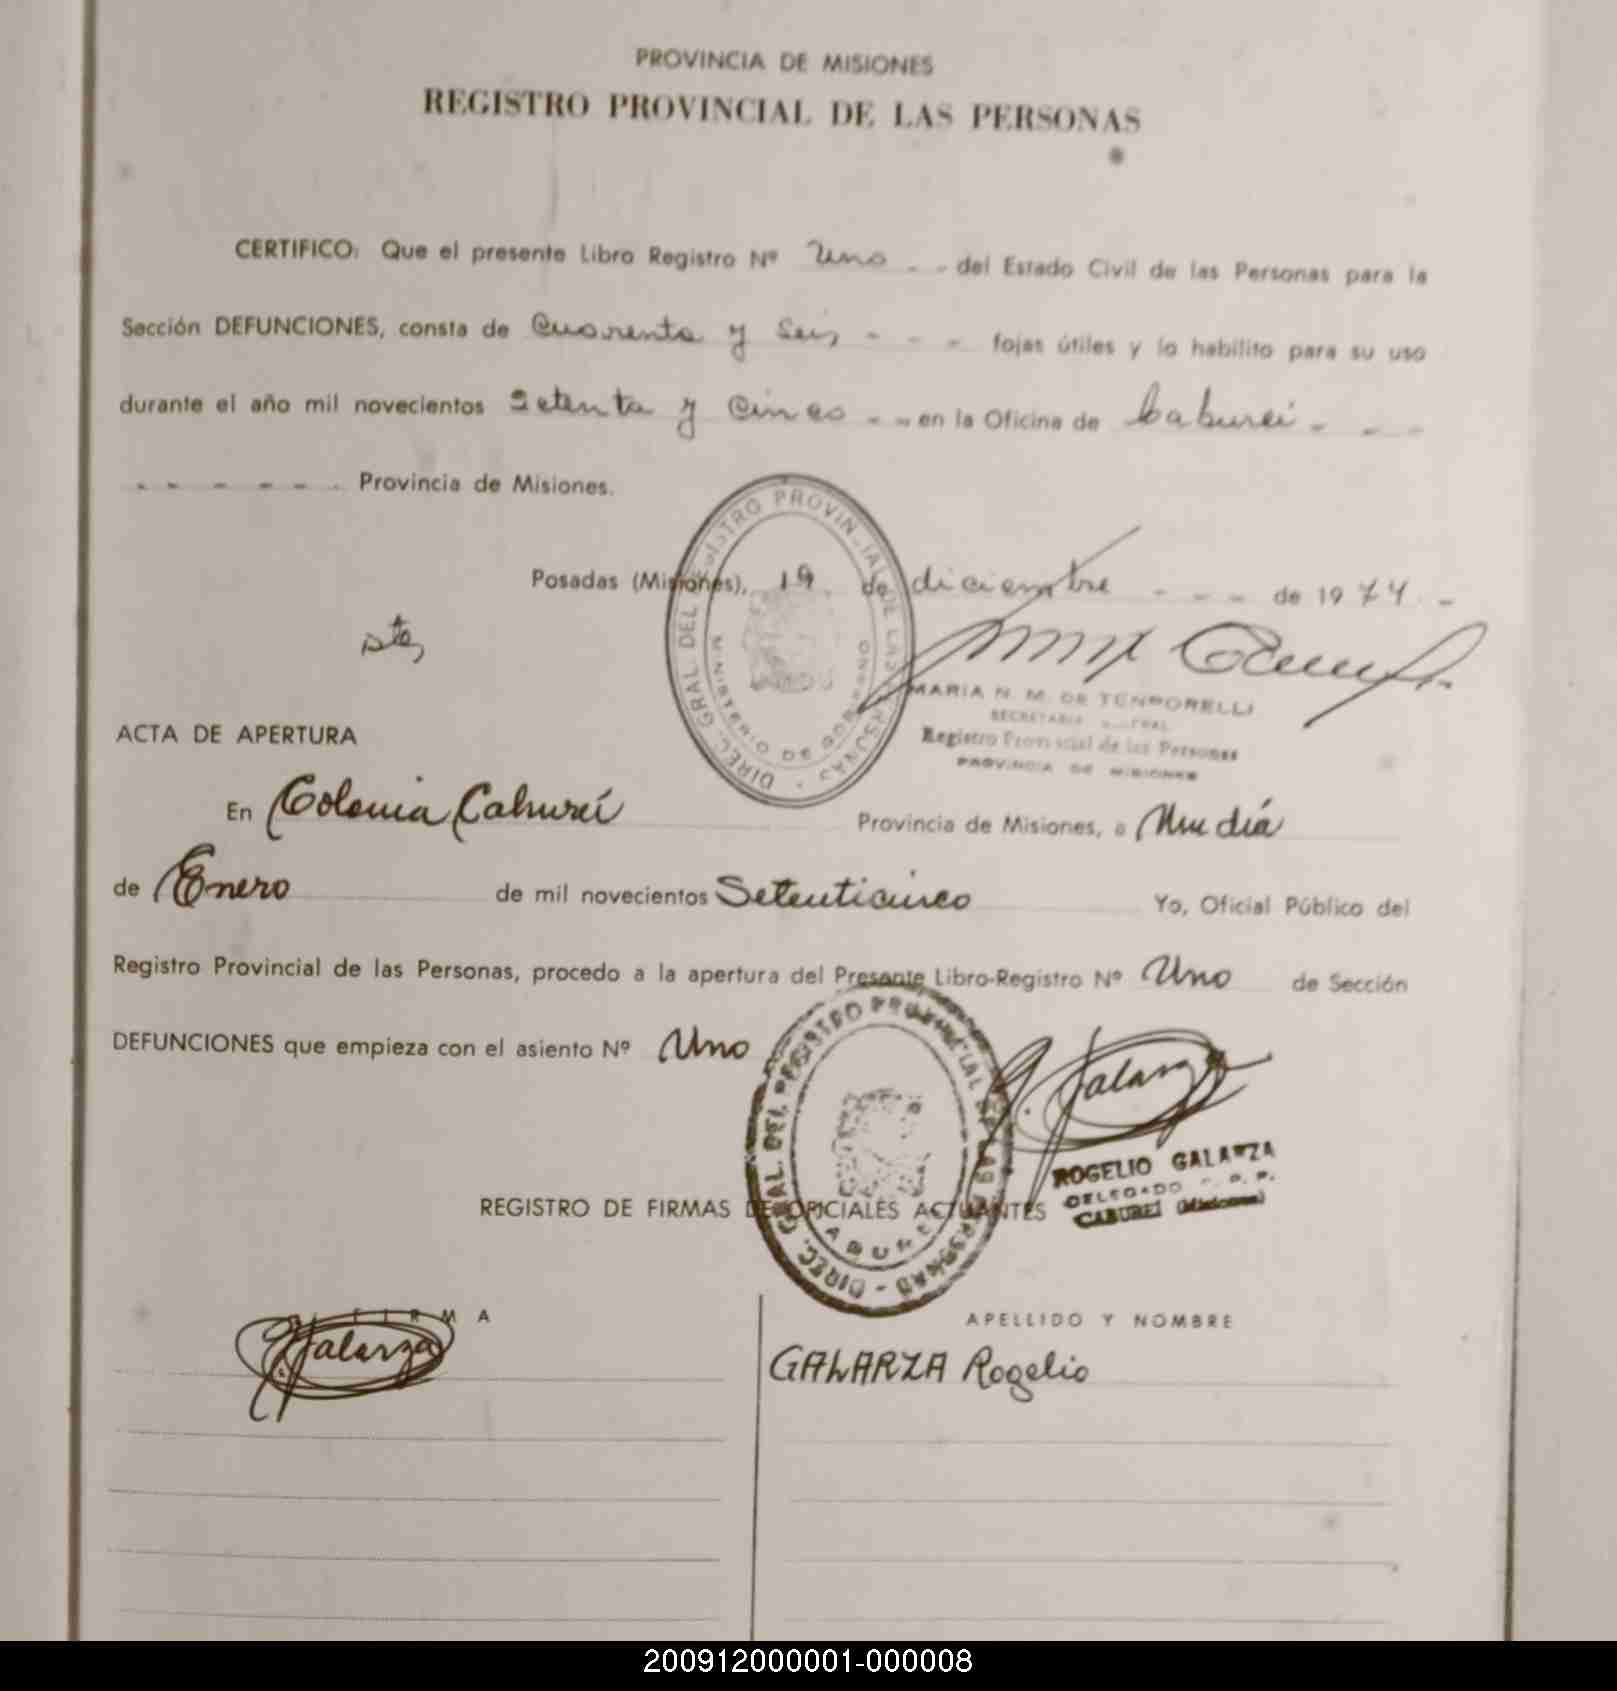 PROVINCIA DE MISIONES
REGISTRO PROVINCIAL DE LAS PERSONAS
CERTIFICO: Que el presente Libro Registro Nº Uno - - del Estado Civil de las Personas para la
Sección DEFUNCIONES, consta de Cuarenta y Seis - - - fojas útiles y lo habilito para su uso
durante el año mil novecientos Setenta y Cinco - - en la Oficina de Caburei - - -
- - - - - - Provincia de Misiones.
Posadas (Misiones), 19 de diciembre - - - de 1974 -
DIREC. GRAL. DEL REGISTRO PROVINCIAL DE LAS PERSONAS
MINISTERIO DE GOBIERNO
MARIA N. M. DE TEMPORELLI
SECRETARIA
Registro Provincial de las Personas
PROVINCIA DE MISIONES
ACTA DE APERTURA
En Colonia Cabureí Provincia de Misiones, a Un día
de Enero de mil novecientos Setenticinco Yo, Oficial Público del
Registro Provincial de las Personas, procedo a la apertura del Presente Libro-Registro Nº Uno de Sección
DEFUNCIONES que empieza con el asiento Nº Uno
DIREC. GRAL. DEL REGISTRO PROVINCIAL DE LAS PERSONAS
CABUREI
R. Galarza
ROGELIO GALARZA
DELEGADO R. P. P.
CABUREÍ (Misiones)
REGISTRO DE FIRMAS DE OFICIALES ACTUANTES
FIRMA APELLIDO Y NOMBRE
R. Galarza GALARZA Rogelio
200912000001-000008